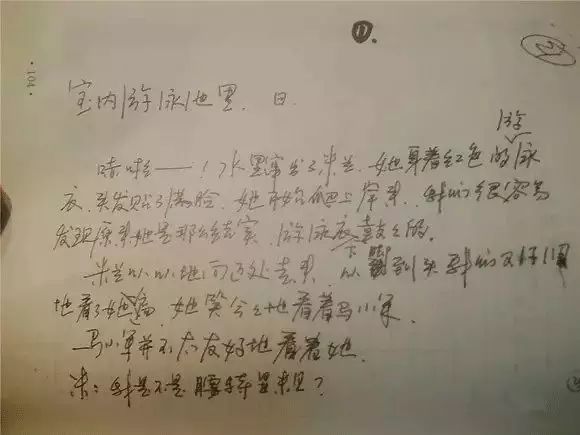 ①.
·104·
室内游泳池里. 日.
哗啦——！水里窜出了米兰. 她穿着红色的游泳
衣. 头发贴了满脸. 她开始爬上岸来. 我们很容易
发现原来她是那么结实 游泳衣鼓鼓的.
米兰 地向 处走来. 从下脚到头我们又仔细
地看了她遍. 她笑公公地看着马小军.
马小军并不太友好地看着她.
米：我是不是腰特显粗？